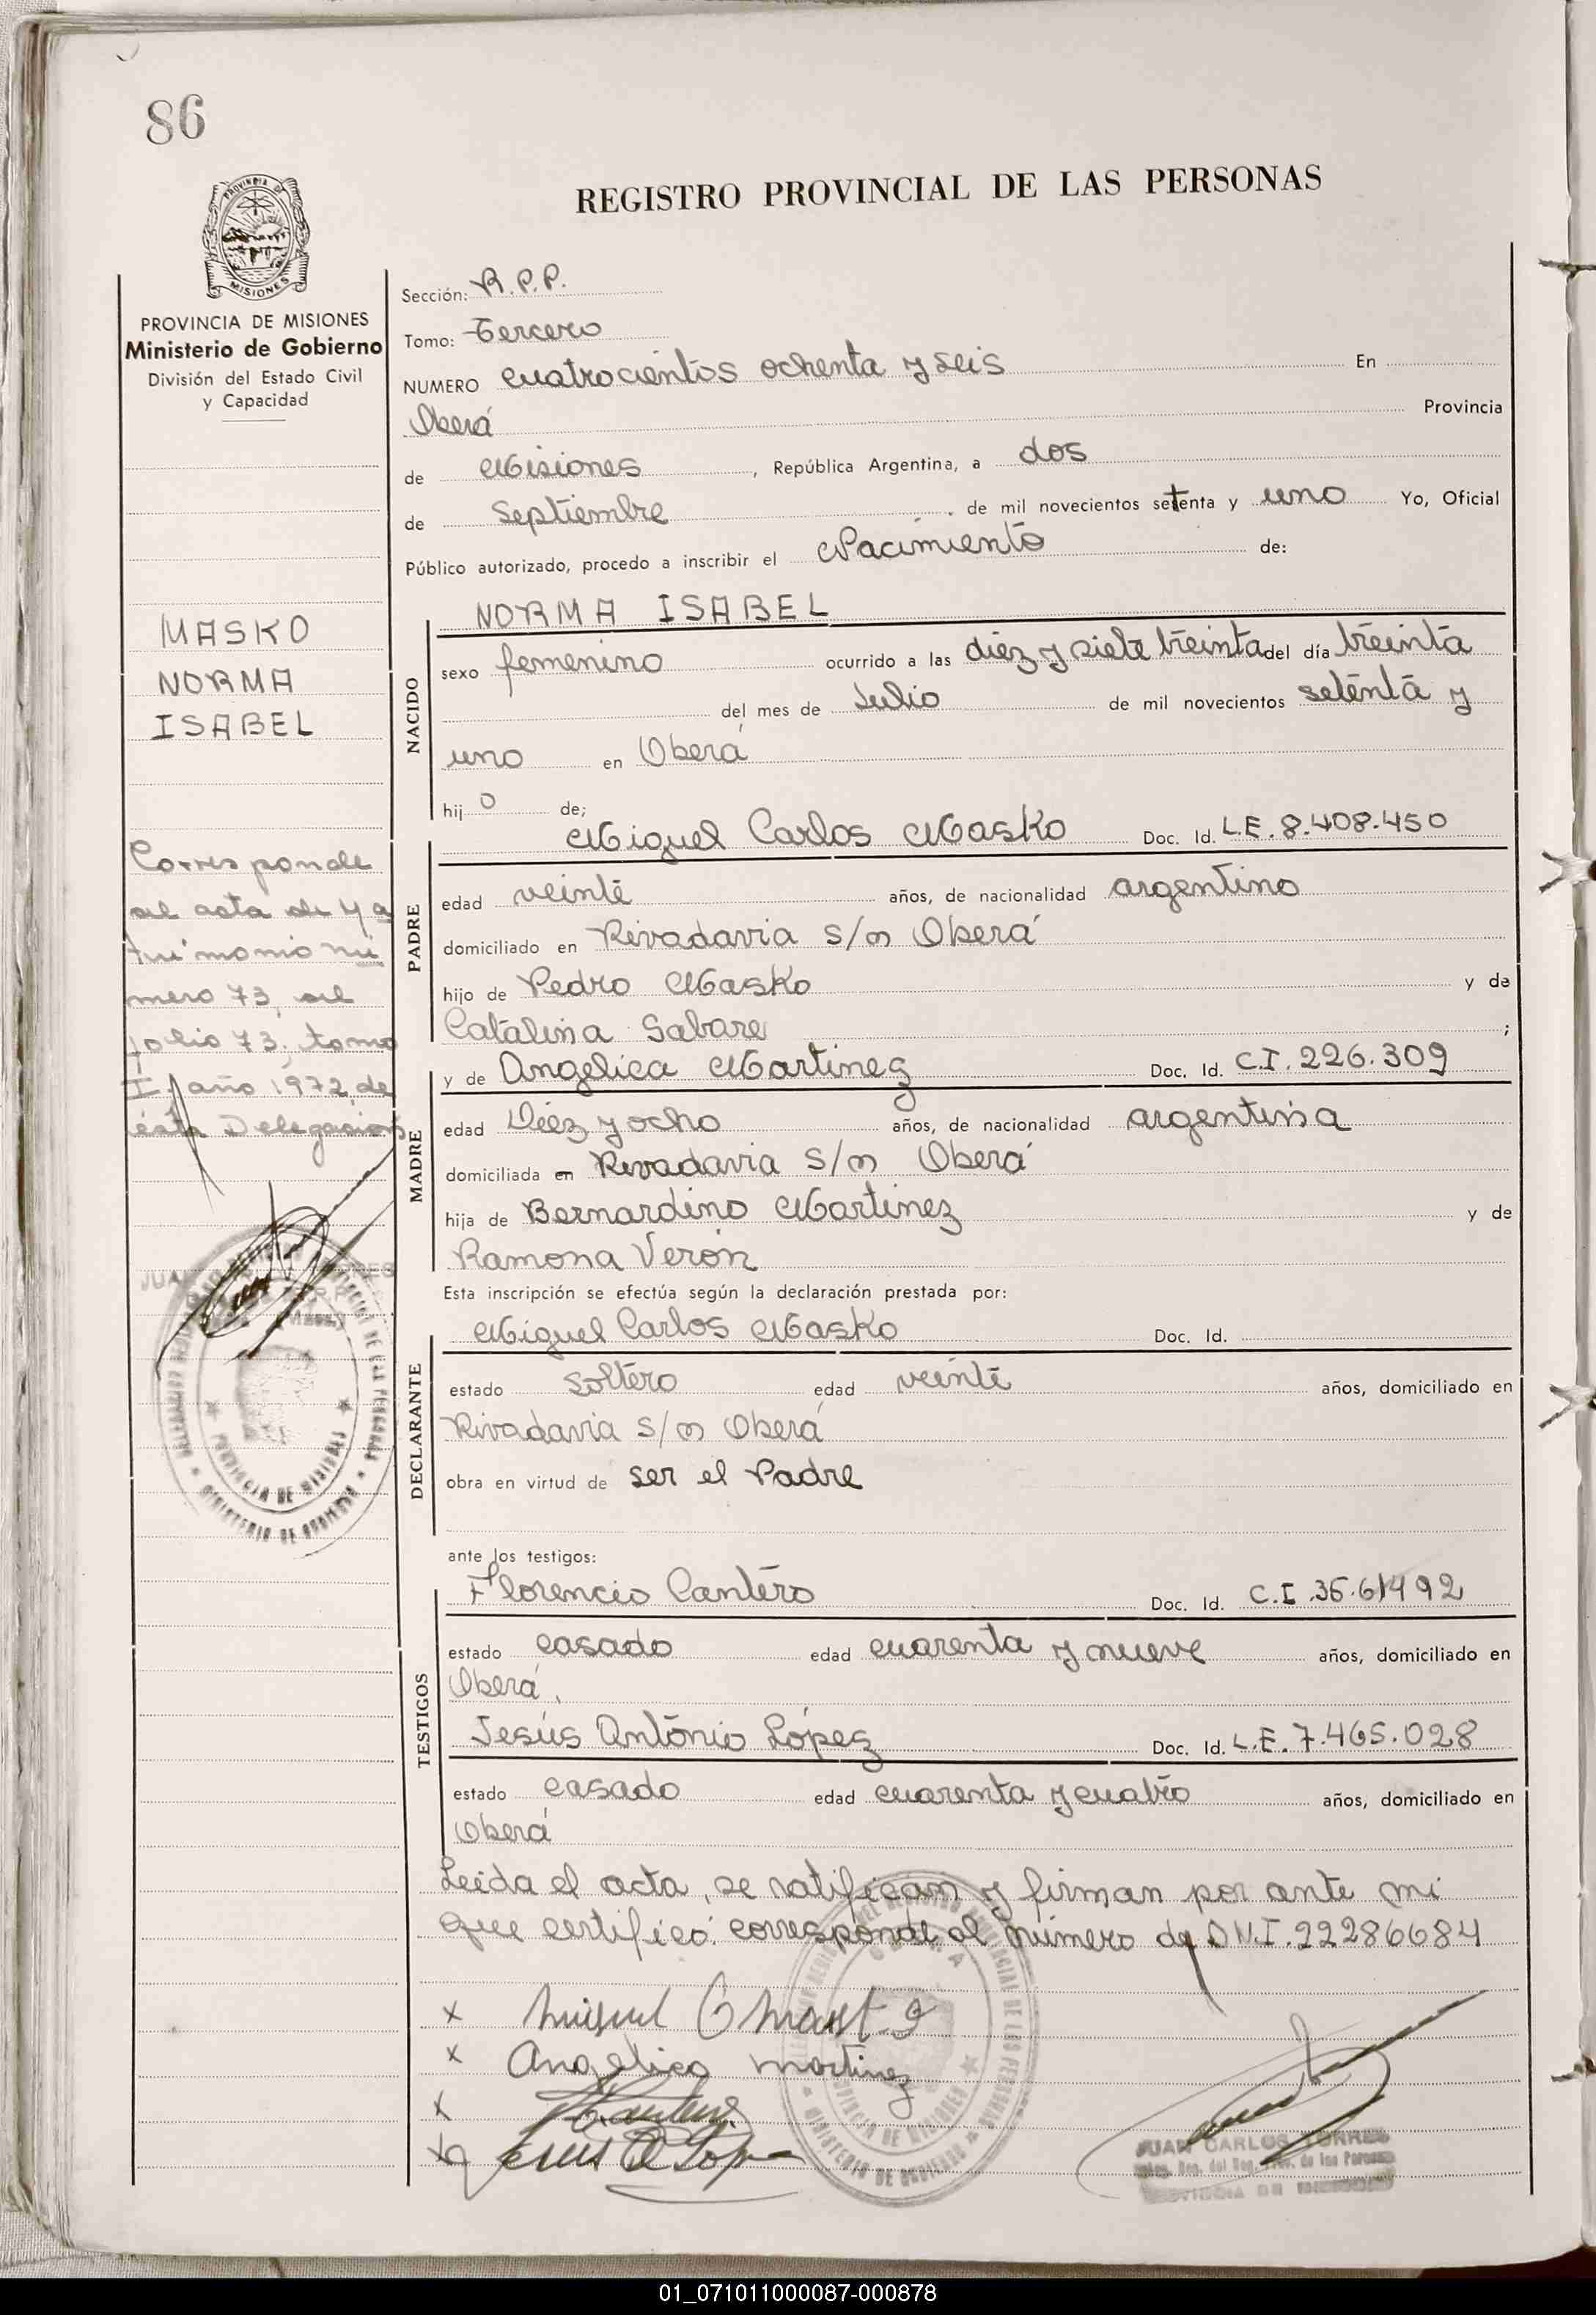 86
REGISTRO PROVINCIAL DE LAS PERSONAS
PROVINCIA DE MISIONES
PROVINCIA DE MISIONES
Ministerio de Gobierno
División del Estado Civil
y Capacidad
MASKO
NORMA
ISABEL
Corresponde
al acta de Ma
trimonio nú
mero 73, al
folio 73, tomo
I, año 1972, de
ésta Delegacion
Sección: R.P.P.
Tomo: Tercero
NUMERO cuatrocientos ochenta y seis En
Oberá Provincia
de Misiones, República Argentina, a dos
de Septiembre de mil novecientos setenta y uno Yo, Oficial
Público autorizado, procedo a inscribir el Nacimiento de:
NACIDO
NORMA ISABEL
sexo femenino ocurrido a las diez y siete treinta del día treinta
del mes de Julio de mil novecientos setenta y
uno en Oberá
hij o de;
PADRE
Miguel Carlos Masko Doc. Id. L.E. 8.408.450
edad veinte años, de nacionalidad argentino
domiciliado en Rivadavia s/n Oberá
hijo de Pedro Masko y de
Catalina Sabare;
MADRE
y de Angelica Martinez Doc. Id. C.I. 226.309
edad Diez y ocho años, de nacionalidad argentina
domiciliada en Rivadavia s/n Oberá
hija de Bernardino Martinez y de
Ramona Verón
Esta inscripción se efectúa según la declaración prestada por:
DECLARANTE
Miguel Carlos Masko Doc. Id.
estado Soltero edad veinte años, domiciliado en
Rivadavia s/n Oberá
obra en virtud de ser el Padre
ante los testigos:
TESTIGOS
Florencio Cantero Doc. Id. C.I.
estado casado edad cuarenta y nueve años, domiciliado en
Oberá,
Jesús Antonio López Doc. Id. L.E. 7.465.028
estado casado edad cuarenta y cuatro años, domiciliado en
Oberá
Leida el acta, se ratifican y firman por ante mi
que certifico: corresponde al número de D.N.I. 22286684
x Miguel C
x Angelica Martinez
x
x Jesus A Lopez
JUAN CARLOS TORRES
PROVINCIA DE MISIONES
MINISTERIO DE GOBIERNO
01_071011000087-000878